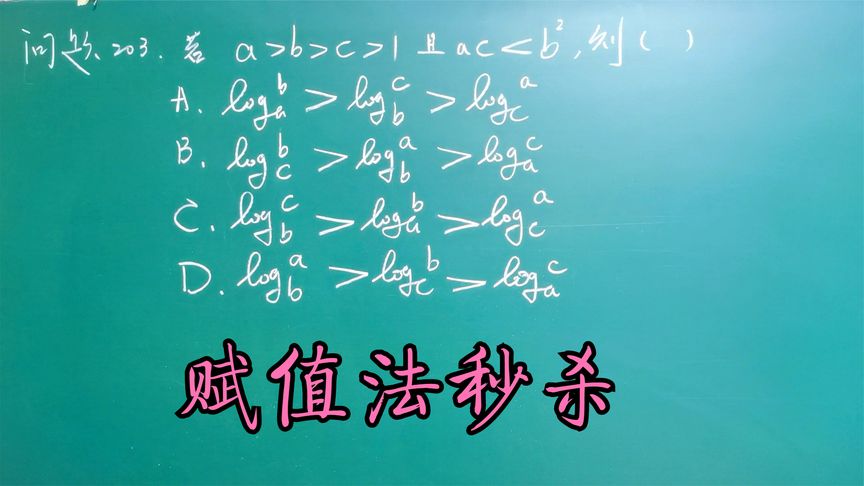 问题203. 若 a>b>c>1 且 ac<b², 则( )
A. logₐb > log_b c > log_c a
B. log_c b > log_b a > logₐc
C. log_b c > logₐb > log_c a
D. log_b a > log_c b > logₐc
赋值法秒杀